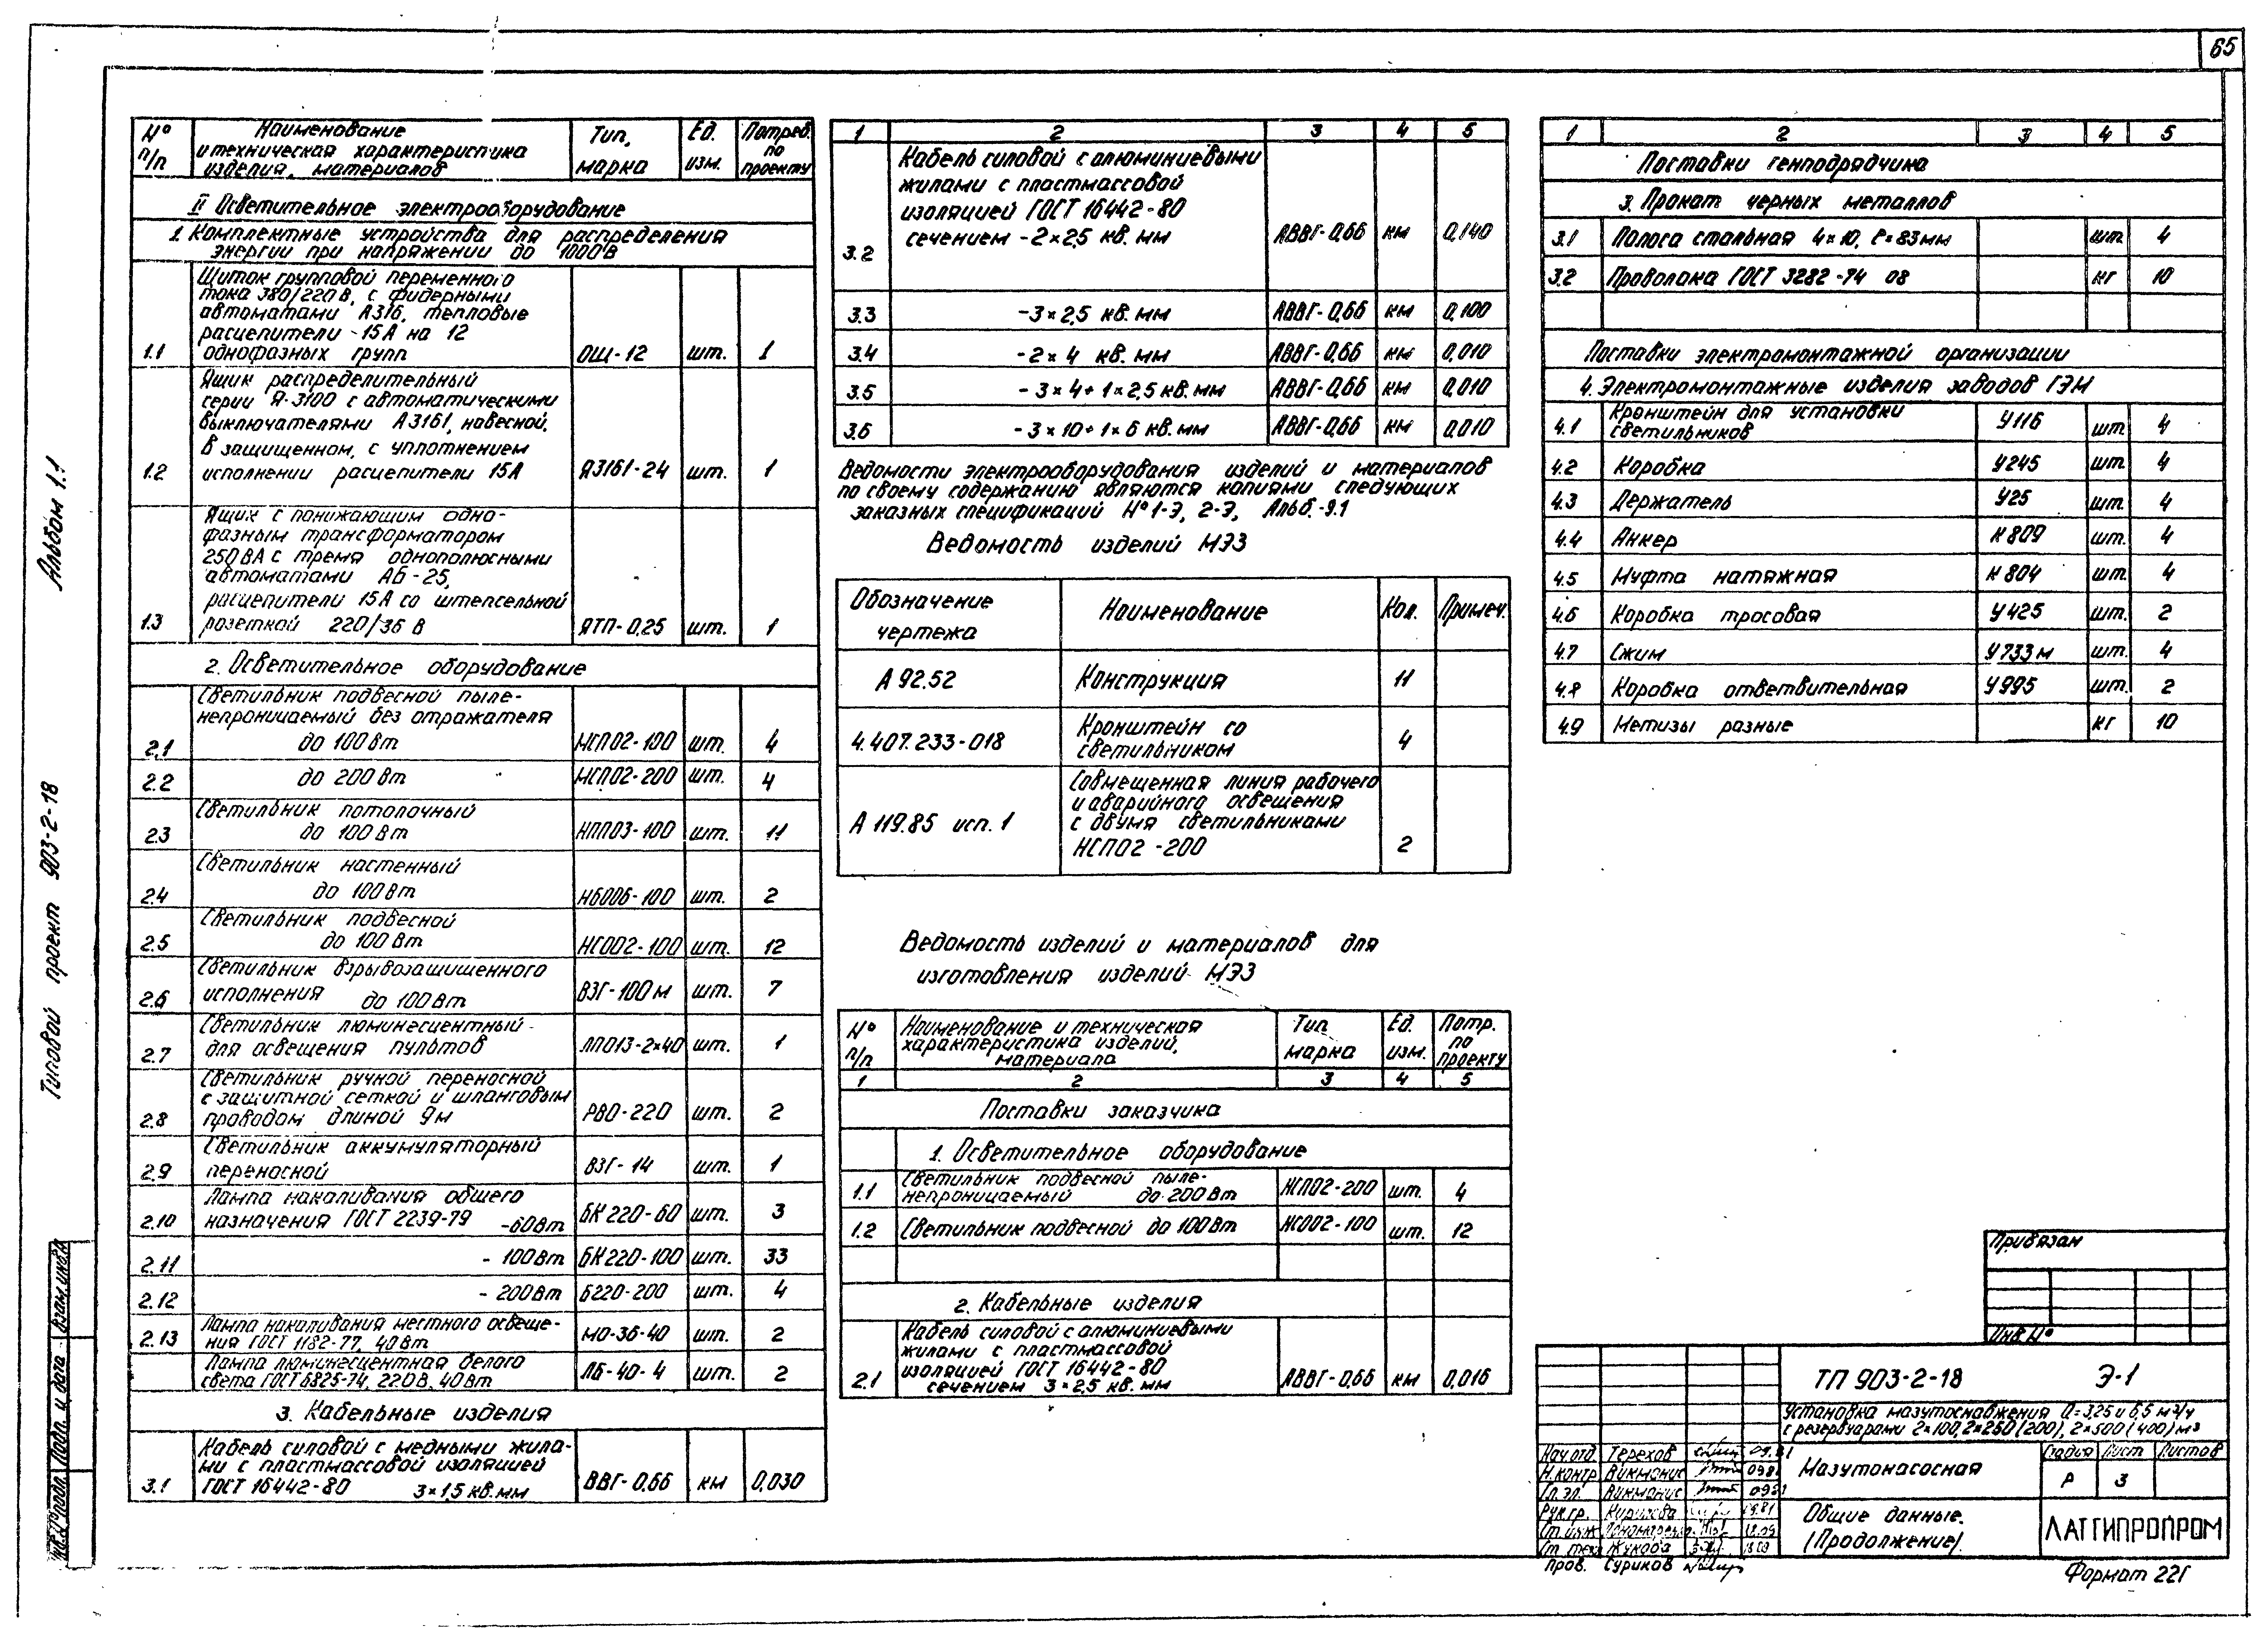 65
Альбом 1.1
Типовой проект 903-2-18
№ п/п | Наименование и техническая характеристика изделия, материалов | Тип, марка | Ед. изм. | Потреб. по проекту
II Осветительное электрооборудование
1 Комплектные устройства для распределения
энергии при напряжении до 1000 В
Щиток групповой переменного
тока 380/220 В, с фидерными
автоматами А316, тепловые
расцепители -15А на 12
1.1 однофазных групп ОЩ-12 шт. 1
Ящик распределительный
серии Я-3100 с автоматическими
выключателями А3161, навесной,
в защищенном, с уплотнением
1.2 исполнении расцепители 15А Я3161-24 шт. 1
Ящик с понижающим одно-
фазным трансформатором
250 ВА с тремя однополюсными
автоматами АБ-25,
расцепители 15А со штепсельной
1.3 розеткой 220/36 В ЯТП-0,25 шт. 1
2. Осветительное оборудование
Светильник подвесной пыле-
непроницаемый без отражателя
2.1 до 100 Вт НСП02-100 шт. 4
2.2 до 200 Вт НСП02-200 шт. 4
Светильник потолочный
2.3 до 100 Вт НПП03-100 шт. 11
Светильник настенный
2.4 до 100 Вт НБ006-100 шт. 2
Светильник подвесной
2.5 до 100 Вт НСО02-100 шт. 12
Светильник взрывозащищенного
2.6 исполнения до 100 Вт ВЗГ-100м шт. 7
Светильник люминесцентный
2.7 для освещения пультов ЛПО13-2×40 шт. 1
Светильник ручной переносной
с защитной сеткой и шланговым
2.8 проводом длиной 9 м РВО-220 шт. 2
Светильник аккумуляторный
2.9 переносной ВЗГ-14 шт. 1
Лампа накаливания общего
2.10 назначения ГОСТ 2239-79 -60Вт БК 220-60 шт. 3
2.11 - 100Вт БК 220-100 шт. 33
2.12 - 200Вт Б220-200 шт. 4
Лампа накаливания местного освеще-
2.13 ния ГОСТ 1182-77, 40 Вт МО-36-40 шт. 2
Лампа люминесцентная белого
света ГОСТ 6825-74, 220 В, 40 Вт ЛБ-40-4 шт. 2
3. Кабельные изделия
Кабель силовой с медными жила-
ми с пластмассовой изоляцией
3.1 ГОСТ 16442-80 3×1,5 кв. мм ВВГ-0,66 км 0,030
1 2 3 4 5
Кабель силовой с алюминиевыми
жилами с пластмассовой
изоляцией ГОСТ 16442-80
3.2 сечением -2×2,5 кв. мм АВВГ-0,66 км 0,140
3.3 -3×2,5 кв. мм АВВГ-0,66 км 0,100
3.4 -2×4 кв. мм АВВГ-0,66 км 0,010
3.5 -3×4+1×2,5 кв. мм АВВГ-0,66 км 0,010
3.6 -3×10+1×6 кв. мм АВВГ-0,66 км 0,010
Ведомости электрооборудования изделий и материалов
по своему содержанию являются копиями следующих
заказных спецификаций №1-Э, 2-Э, Альб.-9.1
Ведомость изделий МЭЗ
Обозначение чертежа | Наименование | Кол. | Примеч.
А 92.52 Конструкция 11
Кронштейн со
4.407.233-018 светильником 4
Совмещенная линия рабочего
и аварийного освещения
А 119.85 исп. 1 с двумя светильниками
НСП02-200 2
Ведомость изделий и материалов для
изготовления изделий МЭЗ
№ п/п | Наименование и техническая характеристика изделий, материала | Тип марка | Ед. изм. | Потр. по проекту
1 2 3 4 5
Поставки заказчика
1. Осветительное оборудование
Светильник подвесной пыле-
1.1 непроницаемый до 200 Вт НСП02-200 шт. 4
1.2 Светильник подвесной до 100 Вт НСО02-100 шт. 12
2. Кабельные изделия
Кабель силовой с алюминиевыми
жилами с пластмассовой
изоляцией ГОСТ 16442-80
2.1 сечением 3×2,5 кв. мм АВВГ-0,66 км 0,016
1 2 3 4 5
Поставки генподрядчика
3. Прокат черных металлов
3.1 Полоса стальная 4×10, ℓ=83мм шт. 4
3.2 Проволока ГОСТ 3282-74 08 кг 10
Поставки электромонтажной организации
4. Электромонтажные изделия заводов ГЭМ
Кронштейн для установки
4.1 светильников У116 шт. 4
4.2 Коробка У245 шт. 4
4.3 Держатель У25 шт. 4
4.4 Анкер К809 шт. 4
4.5 Муфта натяжная К804 шт. 4
4.6 Коробка тросовая У425 шт. 2
4.7 Сжим У733м шт. 4
4.8 Коробка ответвительная У995 шт. 2
4.9 Метизы разные кг 10
Привязан
Инв.№
ТП 903-2-18 Э-1
Установка мазутоснабжения Q=3,25 и 6,5 м³/ч
с резервуарами 2×100, 2×250(200), 2×500(400) м³
Мазутонасосная
Стадия Лист Листов
Р 3
Общие данные.
(Продолжение).
ЛАТГИПРОПРОМ
Нач.отд. Терехов 09.81
Н.контр Викманис
Гл.эл. Викманис
Рук.гр.
Ст.инж.
Ст.техн Жукова
Пров. Суриков
Формат 22Г
Взам.инв.№
Подп. и дата
Инв.№ подл.